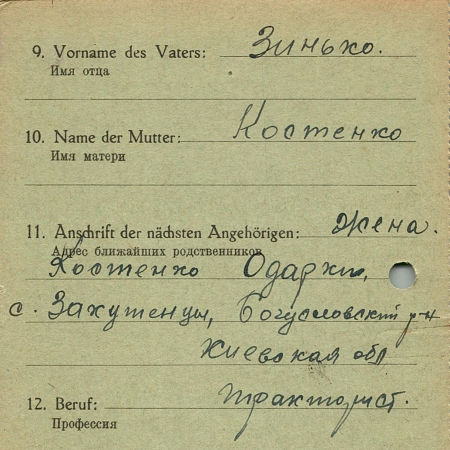 9. Vorname des Vaters: Зинько.
Имя отца
10. Name der Mutter: Костенко
Имя матери
11. Anschrift der nächsten Angehörigen: Жена.
Адрес ближайших родственников
Костенко Одарки,
с. Закутенцы, Богуславский р-н
Киевская обл
12. Beruf: тракторист.
Профессия